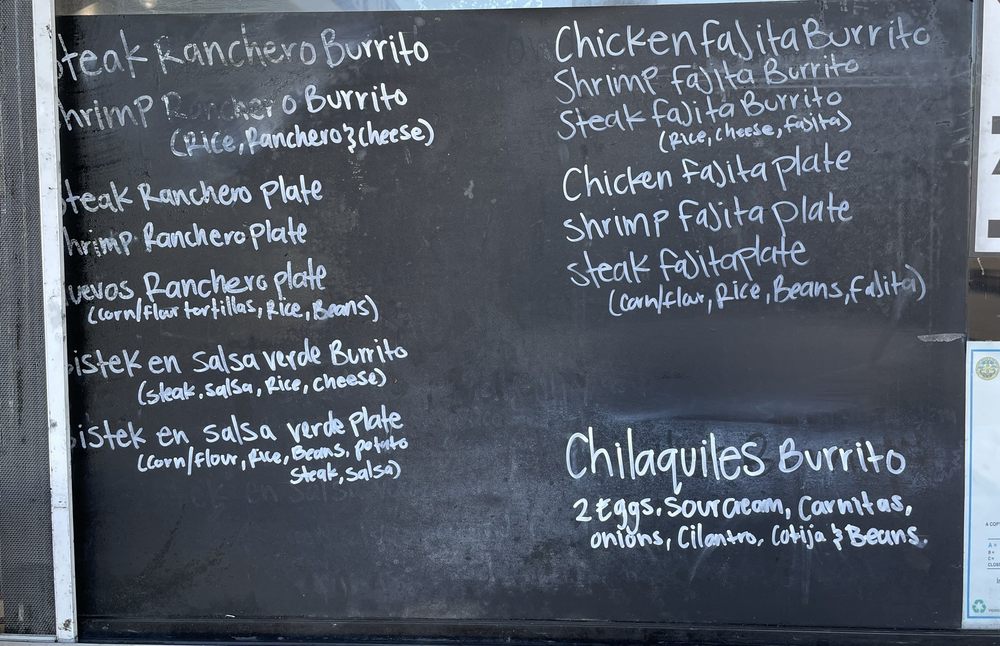 Steak Ranchero Burrito
Shrimp Ranchero Burrito
(Rice, Ranchero & Cheese)
Steak Ranchero Plate
Shrimp Ranchero Plate
Huevos Ranchero Plate
(Corn/flour tortillas, Rice, Beans)
Bistek en Salsa verde Burrito
(steak, salsa, Rice, Cheese)
Bistek en Salsa verde Plate
(Corn/flour, Rice, Beans, potato
Steak, salsa)
Chicken fajita Burrito
Shrimp fajita Burrito
Steak fajita Burrito
(Rice, cheese, fajita)
Chicken fajita plate
Shrimp fajita plate
Steak fajita plate
(Corn/flour, Rice, Beans, fajita)
Chilaquiles Burrito
2 Eggs, Sourcream, Carnitas,
onions, Cilantro, Cotija & Beans.